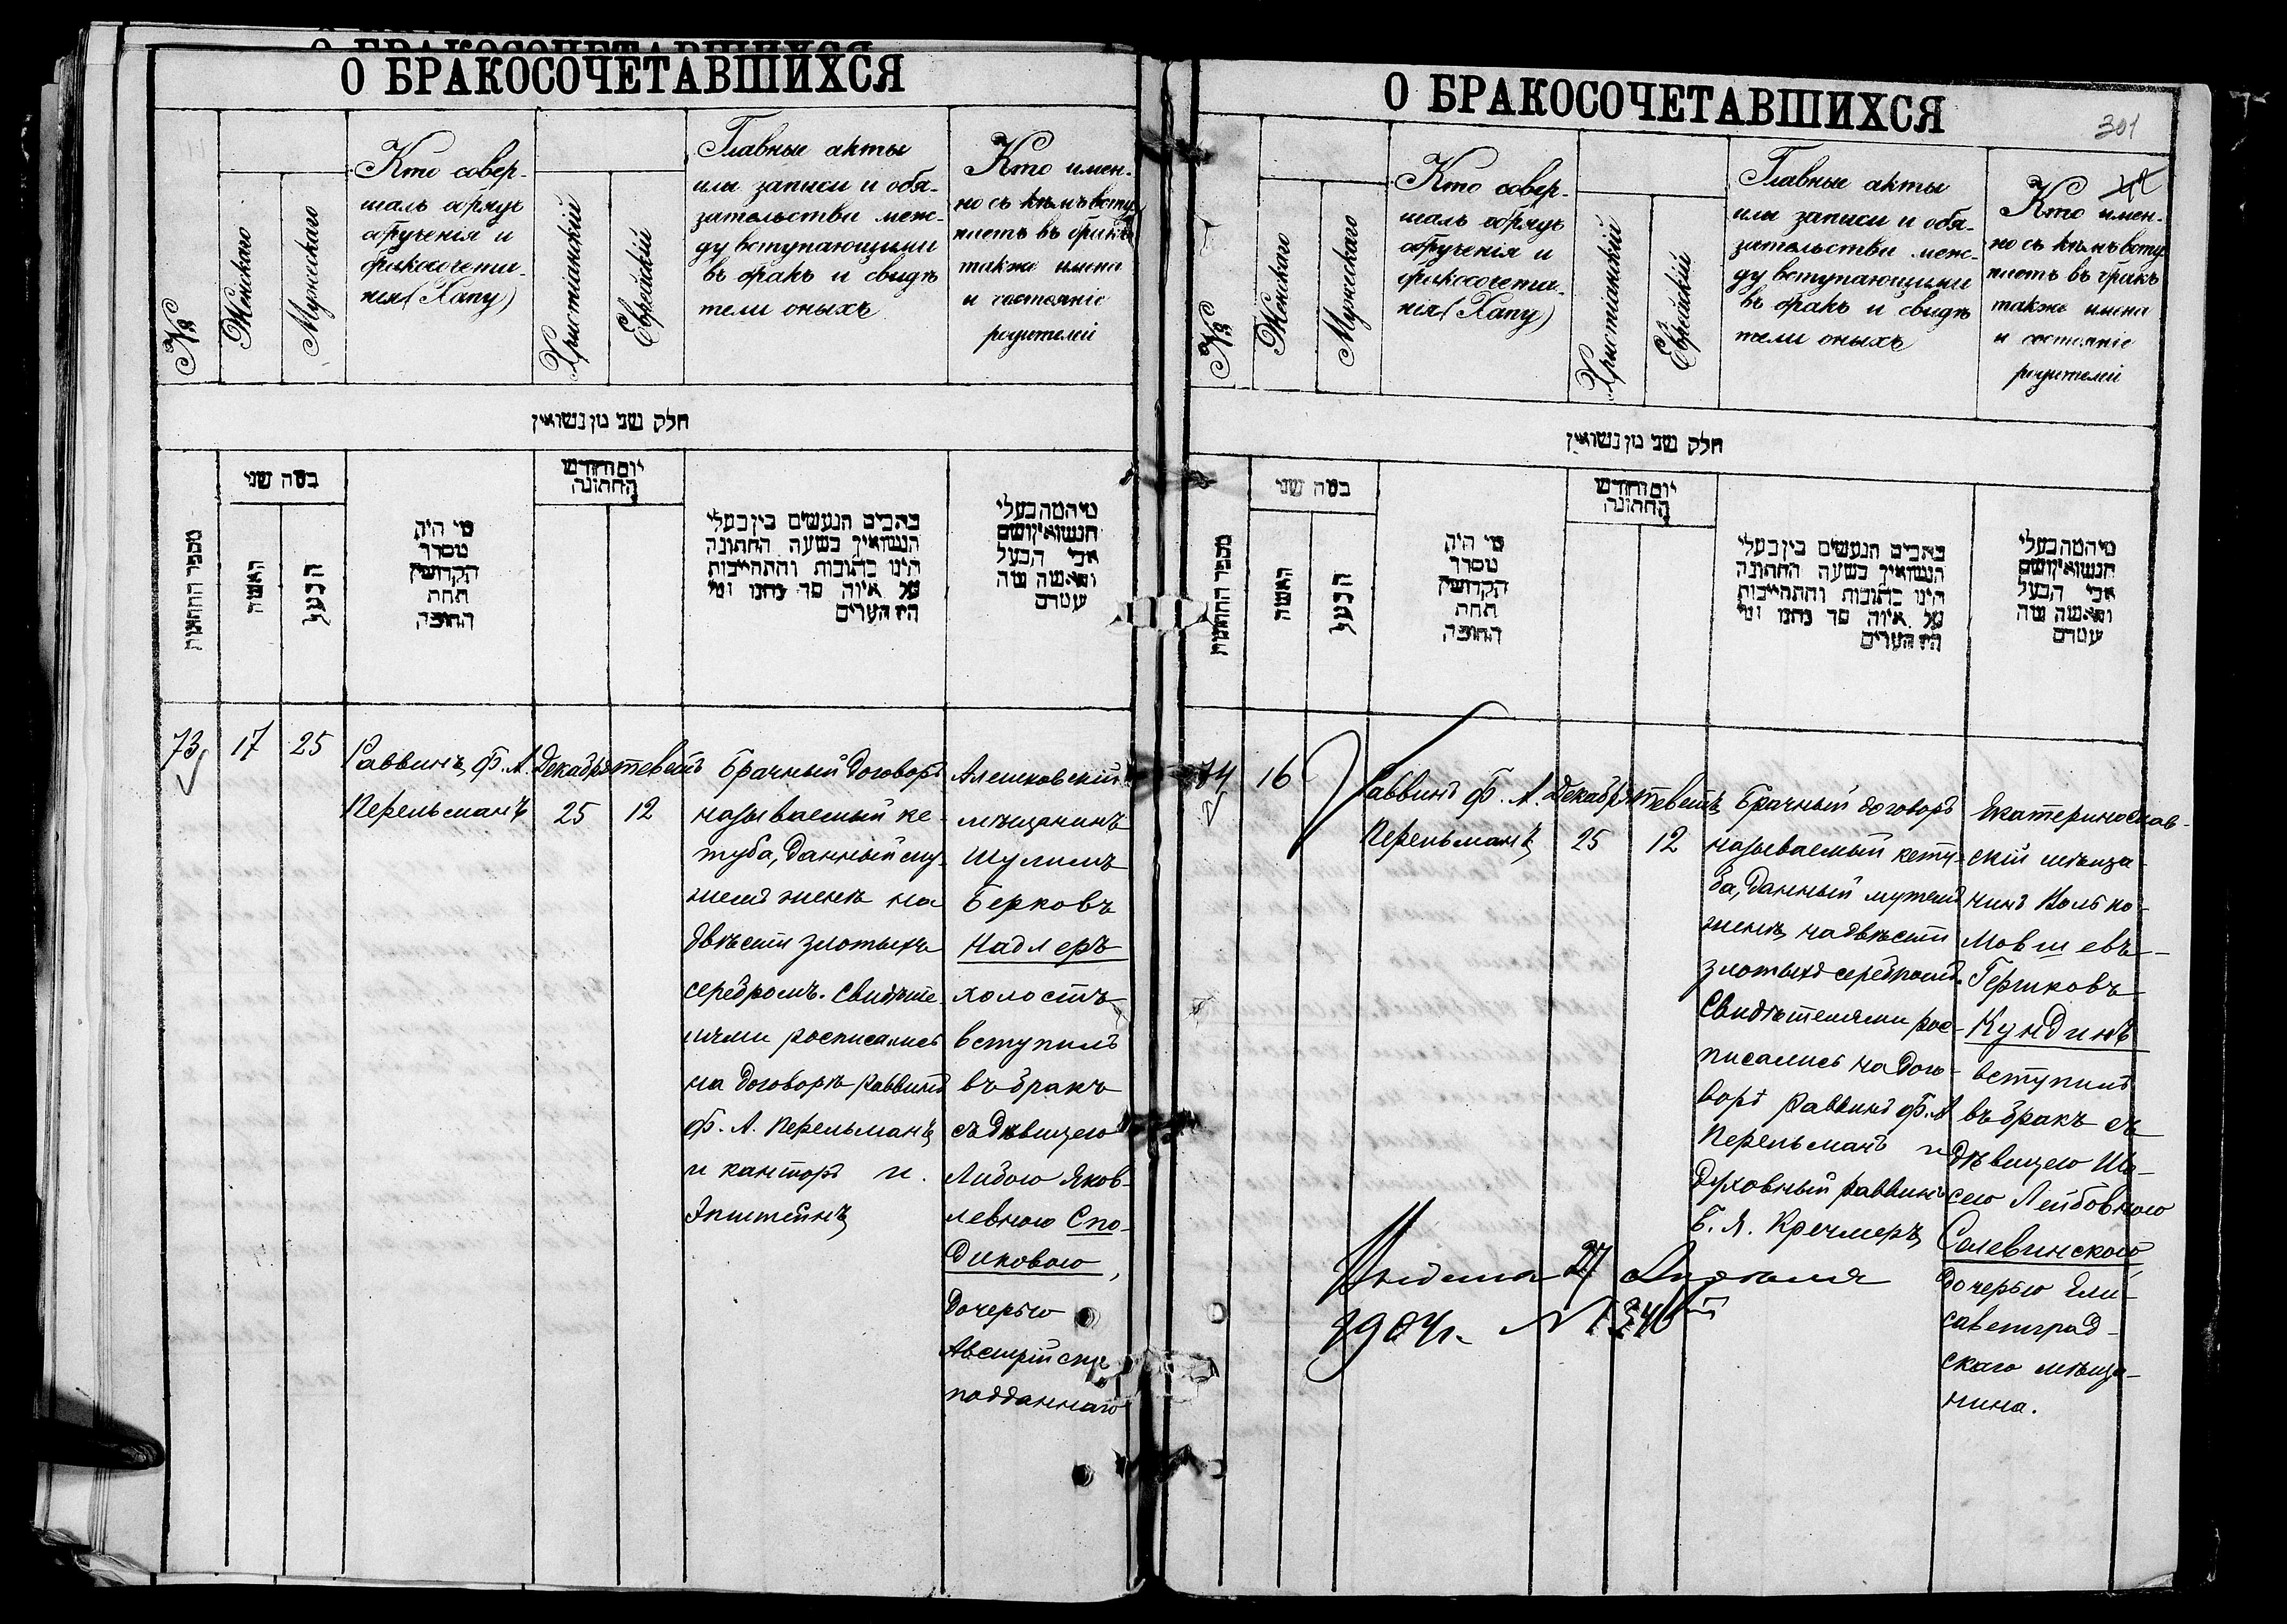 О БРАКОСОЧЕТАВШИХСЯ
№
Женскаго
Мужескаго
Кто совер-
шалъ обрядъ
обрученія и
бракосочета-
нія (Хапу)
Христіанскій
Еврейскій
Главные акты
или записи и обя-
зательства меж-
ду вступающими
въ бракъ и свидѣ
тели оныхъ
Кто имен-
но съ кѣмъ всту
паетъ въ бракъ
также имена
и состояніе
родителей
חלק שני מן נשואין
מספר החתונות
כמה שני
האשה
הבעל
מי היה
מסדר
הקדושין
תחת
החופה
יום וחודש
החתונה
כתבים הנעשים בין בעלי
הנשואין בשעה החתונה
היינו כתובות והתחייבות
על איזה סך נתנו ומי
היו העדים
מי המה בעלי
הנשואין ושם
אבי הבעל
והאשה ומה
עמדם
73
17
25
Раввинъ Ф. А.
Перельманъ
Декабря
25
теветъ
12
Брачный договоръ
называемый ке-
туба, данный му-
жемъ женѣ на
двѣсти злотыхъ
серебромъ. Свидѣте-
лями росписались
на договорѣ раввинъ
Ф. А. Перельманъ
и канторъ И.
Эпштейнъ
Алешковскій
мѣщанинъ
Шулимъ
Берковъ
Надлеръ
холостъ
вступилъ
въ бракъ
съ дѣвицею
Либою Яков-
левною Спо-
диковою,
дочерью
Австрійска
подданнаго
О БРАКОСОЧЕТАВШИХСЯ
301
№
Женскаго
Мужескаго
Кто совер-
шалъ обрядъ
обрученія и
бракосочета-
нія (Хапу)
Христіанскій
Еврейскій
Главные акты
или записи и обя-
зательства меж-
ду вступающими
въ бракъ и свидѣ
тели оныхъ
Кто имен-
но съ кѣмъ всту
паетъ въ бракъ
также имена
и состояніе
родителей
חלק שני מן נשואין
מספר החתונות
כמה שני
האשה
הבעל
מי היה
מסדר
הקדושין
תחת
החופה
יום וחודש
החתונה
כתבים הנעשים בין בעלי
הנשואין בשעה החתונה
היינו כתובות והתחייבות
על איזה סך נתנו ומי
היו העדים
מי המה בעלי
הנשואין ושם
אבי הבעל
והאשה ומה
עמדם
74
16
Раввинъ Ф. А.
Перельманъ
Декабря
25
теветъ
12
Брачный договоръ
называемый кету-
ба, данный мужемъ
женѣ на двѣсти
злотыхъ серебромъ.
Свидѣтелями рос-
писались на дого-
ворѣ раввинъ Ф. А
Перельманъ и
духовный раввинъ
Б. Я. Кречмеръ
Екатеринослав-
скій мѣща-
нинъ Волько-
Мовшевъ-
Гершковъ
Кундинъ
вступилъ
въ бракъ съ
дѣвицею Ше-
сею Лейбовною
Салевинскою
дочерью Ели-
саветград-
скаго мѣща-
нина.
Выдана 27 Апрѣля
1904 г. №